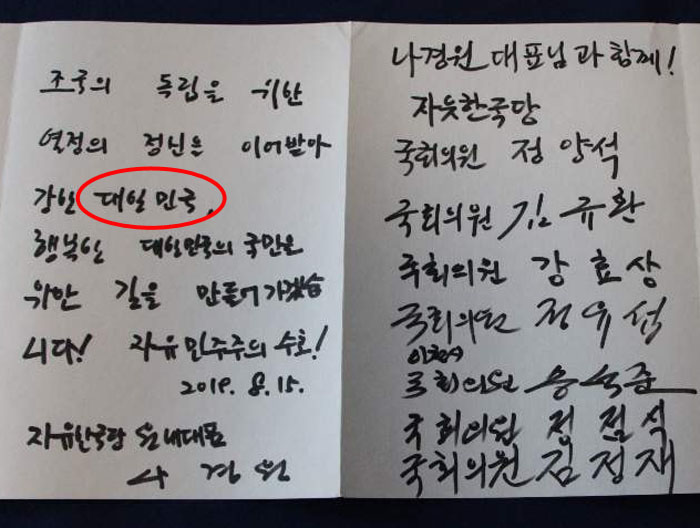 조국의 독립을 위한
열정의 정신을 이어받아
강한 대일민국,
행복한 대일민국의 국민을
위한 길을 만들어가겠습
니다! 자유민주주의 수호!
2019. 8. 15.
자유한국당 원내대표
나 경 원
나경원 대표님과 함께!
자유한국당
국회의원 정양석
국회의원 김규환
국회의원 강효상
국회의원 정유섭
이천시
국회의원 송석준
국회의원 정점식
국회의원 김정재